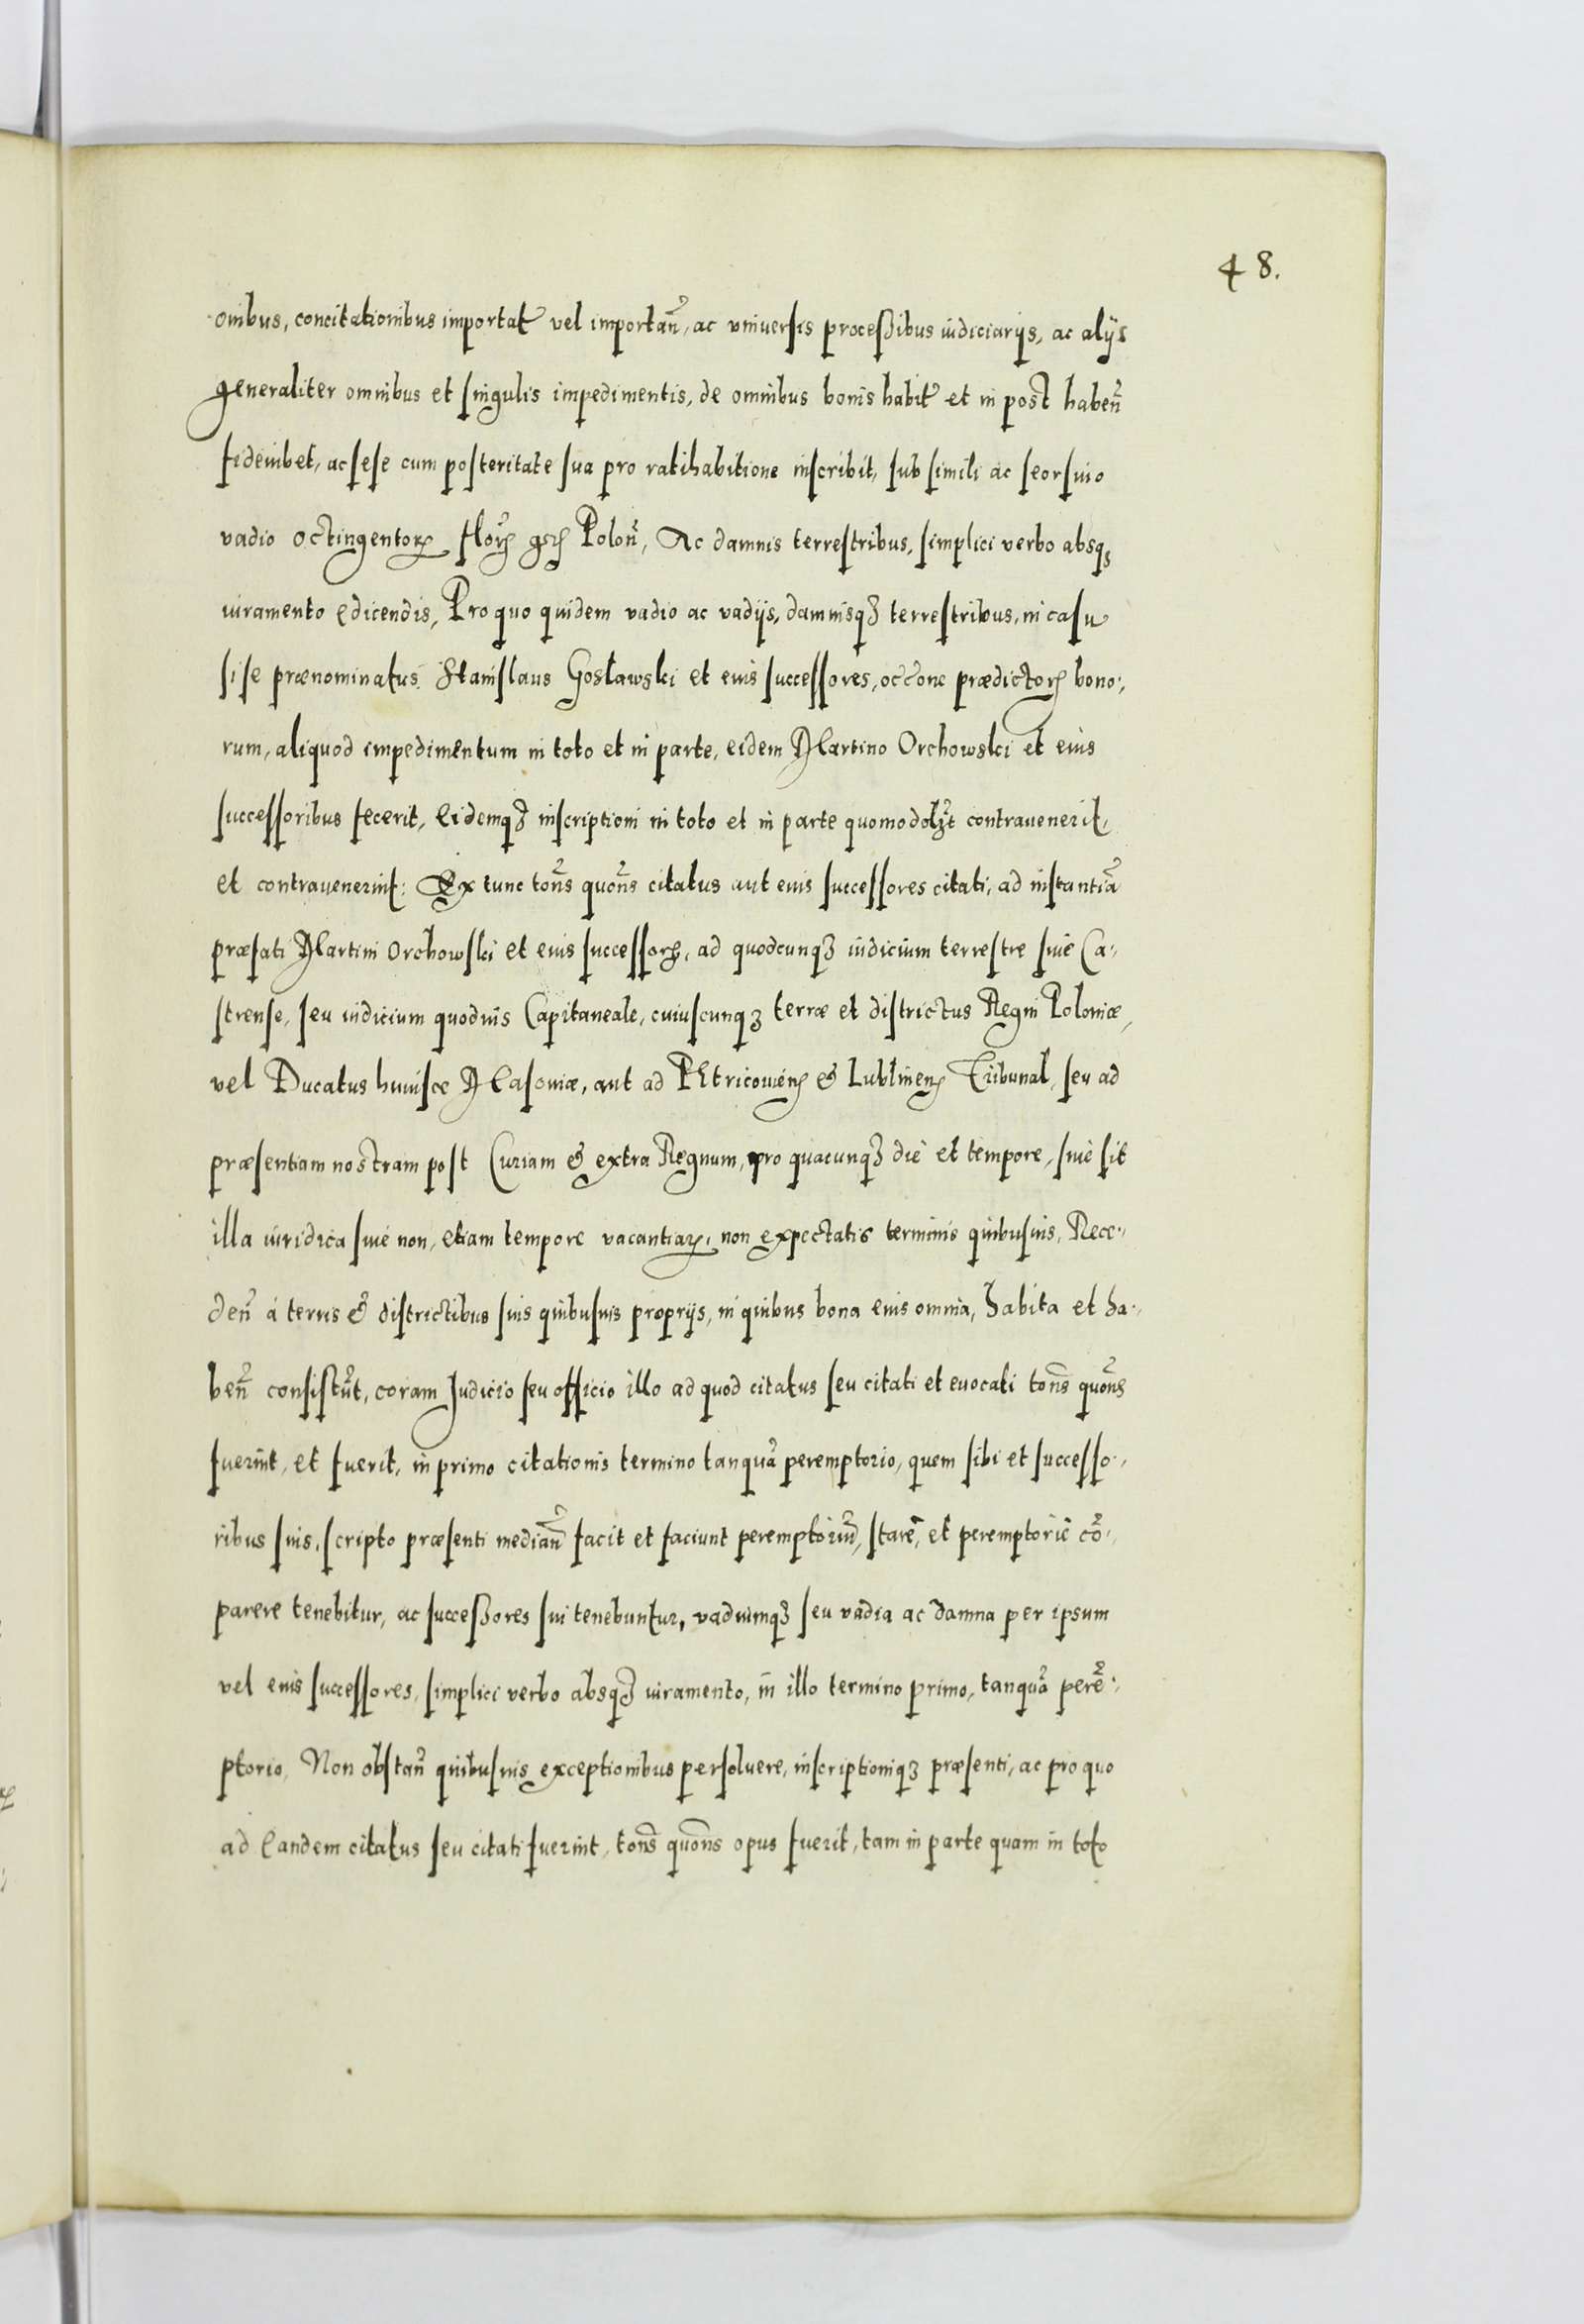 48.
onibus, concitationibus importat͂ vel importan̄, ac vniuersis proceßibus iudiciarijs, ac alijs
generaliter omnibus et singulis impedimentis, de omnibus bonis habit͂ et in post haben̄
fideiubet, ac sese cum posteritate sua pro ratihabitione inscribit, sub simili ac seorsiuo
vadio octingentorꝝ florꝝ grꝝ Polon̄, Ac damnis terrestribus, simplici verbo absqꝫ
iuramento edicendis, Pro quo quidem vadio ac vadijs, damnisqꝫ terrestribus, in casu
si se prænominatus Stanislaus Gosławski et eius successores, occōne prædictorꝝ bono:,
rum, aliquod impedimentum in toto et in parte, eidem Martino Orchowski et eius
successoribus fecerit, Eidemqꝫ inscriptioni in toto et in parte quomodolꝫt contrauenerit,
et contrauenerint: Ex tunc tōns quōns citatus aut eius successores citati, ad instantiā
præfati Martini Orchowski et eius successorꝝ, ad quodcunqꝫ iudicium terrestre siue Ca:,
strense, seu iudicium quoduis Capitaneale, cuiuscunqꝫ terræ et districtus Regni Poloniæ,
vel Ducatus huiusce Masouiæ, aut ad Petricouien̄ & Lublinen̄ Tribunal, seu ad
præsentiam nostram post Curiam & extra Regnum, pro quacunqꝫ die et tempore, siue sit
illa iuridica siue non, etiam tempore vacantiarꝝ, non expectatis terminis quibusuis, Rece:,
den̄ á terris & districtibus suis quibusuis proprijs, in quibus bona eius omnia, habita et ha:,
ben̄ consistūt, coram Judicio seu officio illo ad quod citatus seu citati et euocati tōns quōns
fuerint, et fuerit, in primo citationis termino tanquā peremptorio, quem sibi et successo:,
ribus suis, scripto præsenti median̄ facit et faciunt peremptoriū, stare, et peremptorie cō:,
parere tenebitur, ac succeßores sui tenebuntur, vadiumqꝫ seu vadia ac damna per ipsum
vel eius successores, simplici verbo absqꝫ iuramento, in illo termino primo, tanquā perē:,
ptorio, Non obstan̄ quibusuis exceptionibus persoluere, inscriptioniqꝫ præsenti, ac pro quo
ad Eandem citatus seu citati fuerint, tōns quōns opus fuerit, tam in parte quam in toto